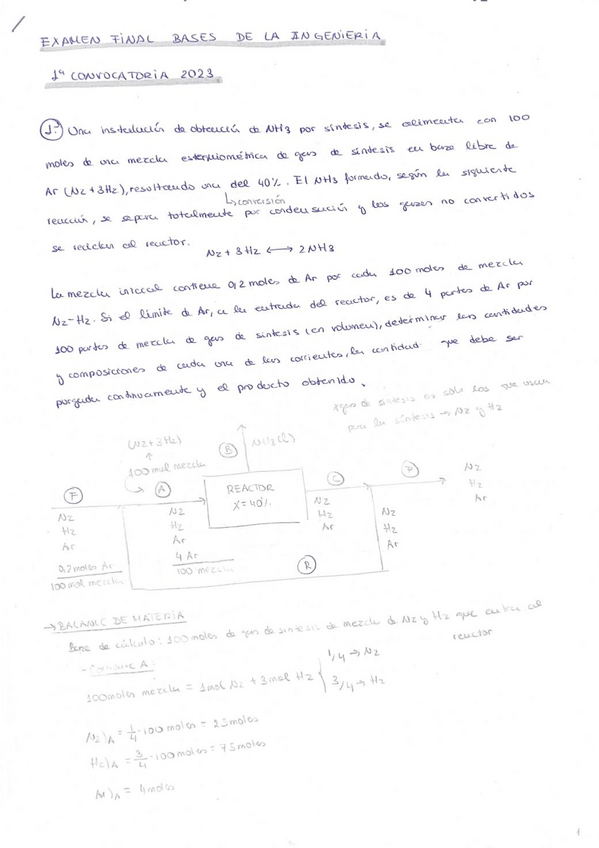 EXAMEN FINAL BASES DE LA INGENIERIA
1ª CONVOCATORIA 2023
1º Una instalación de obtención de NH3 por síntesis, se alimenta con 100
moles de una mezcla estequiométrica de gas de síntesis en base libre de
Ar (N2 + 3H2), resultando una del 40%. El NH3 formado, según la siguiente
↳ conversión
reacción, se separa totalmente por condensación y los gases no convertidos
se reciclan al reactor.
N2 + 3H2 ⟷ 2NH3
La mezcla inicial contiene 0,2 moles de Ar por cada 100 moles de mezcla
N2-H2. Si el límite de Ar, a la entrada del reactor, es de 4 partes de Ar por
100 partes de mezcla de gas de síntesis (en volumen), determinar las cantidades
y composiciones de cada una de las corrientes, la cantidad que debe ser
purgada continuamente y el producto obtenido.
gas de síntesis es sólo los que usan
para la síntesis → N2 y H2
(N2+3H2)
↑
100 mol mezcla
B NH3(l)
F A REACTOR C P N2
X=40% H2
Ar
N2 N2 N2 N2
H2 H2 H2 H2
Ar Ar Ar Ar
0,2 moles Ar 4 Ar
100 mol mezcla 100 mezcla
R
→ BALANCE DE MATERIA
Base de cálculo: 100 moles de gas de síntesis de mezcla de N2 y H2 que entra al
reactor
- Corriente A:
100 moles mezcla = 1mol N2 + 3mol H2 { 1/4 → N2
3/4 → H2
N2)A = 1/4 · 100 moles = 25 moles
H2)A = 3/4 · 100 moles = 75 moles
Ar)A = 4 moles
1